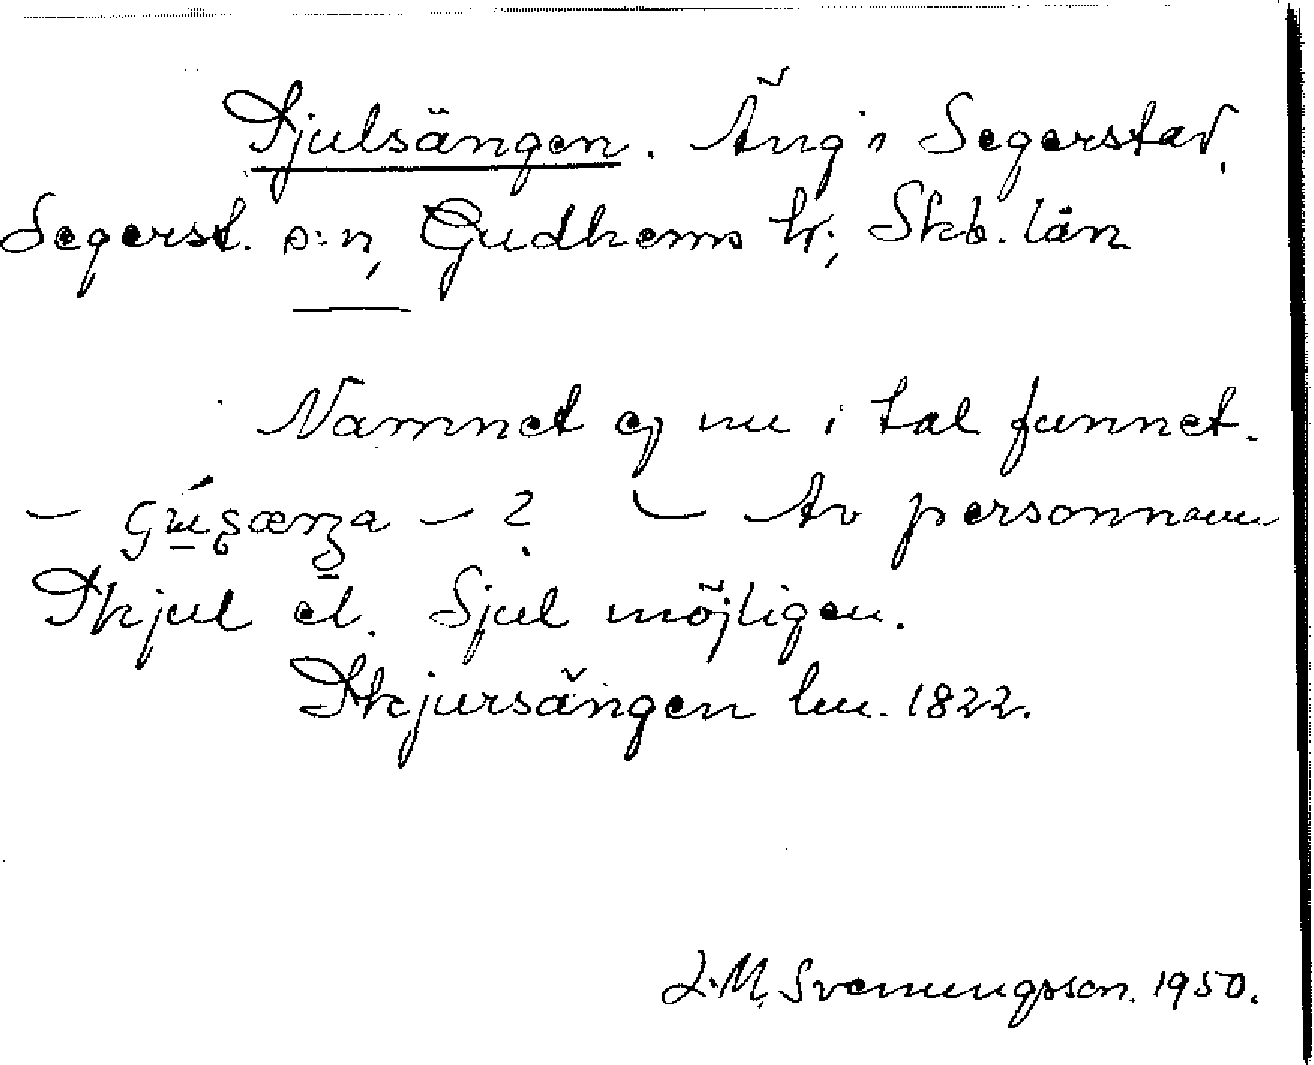 Tjulsängen. Äng i Segerstad,
Segerst. s:n, Gudhems hr; Skb. län
Namnet ej nu i tal funnet.
— — ? — Av personnamn
Tkjul el. Sjul möjligen.
Tkjursängen lm. 1822.
J. M. Svenungsson. 1950.